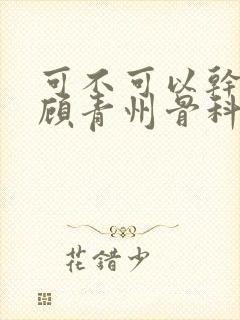 可不可以幹
顾青州骨科
花错少